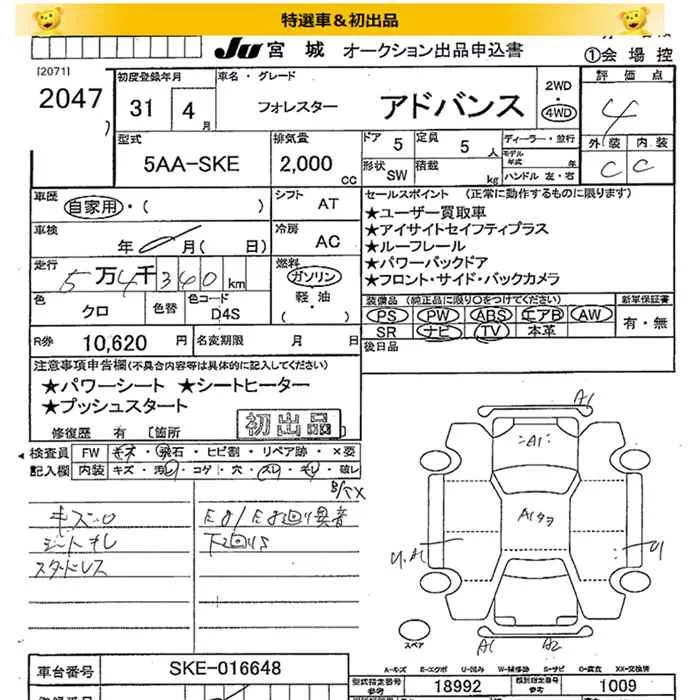 特選車&初出品
JU 宮城 オークション出品申込書
①会場控
[2071]
2047
初度登録年月
31 4月
車名・グレード
フォレスター アドバンス
2WD
4WD
評価点
4
型式
5AA-SKE
排気量
2,000 CC
ドア 5
定員 5人
形状 SW
積載 kg
ディーラー・並行
モデル年式 年
ハンドル 左・右
外装 内装
C C
車歴
自家用・( )
シフト AT
セールスポイント (正常に動作するものに限ります)
★ユーザー買取車
★アイサイトセイフティプラス
★ルーフレール
★パワーバックドア
★フロント・サイド・バックカメラ
車検
年 月(日)
冷房 AC
走行
5万4千340km
燃料
ガソリン
軽油
(・)
色 クロ
色替
色コード D4S
装備品 (純正品に限り○をつけてください)
PS PW ABS エアB AW
SR ナビ TV 本革
新車保証書
有・無
R券 10,620円
名変期限 月 日
後日品
注意事項申告欄(不具合内容等は具体的に記入してください)
★パワーシート ★シートヒーター
★プッシュスタート
初出品
修復歴 有 [箇所
検査員 FW キズ・飛石・ヒビ割・リペア跡・×要
記入欄 内装 キズ・汚れ・コゲ・穴・スレ・キレ・破レ
キズ
シート
スタッドレス
異音
下廻りS
A1
A1
A1
U
U.A1
スペア
A1 A2
A-キズ E-エクボ U-凹み W-補修跡 S-サビ C-腐食 XX-交換済
車台番号 SKE-016648
型式指定番号 参考 18992
類別指定番号 参考 1009